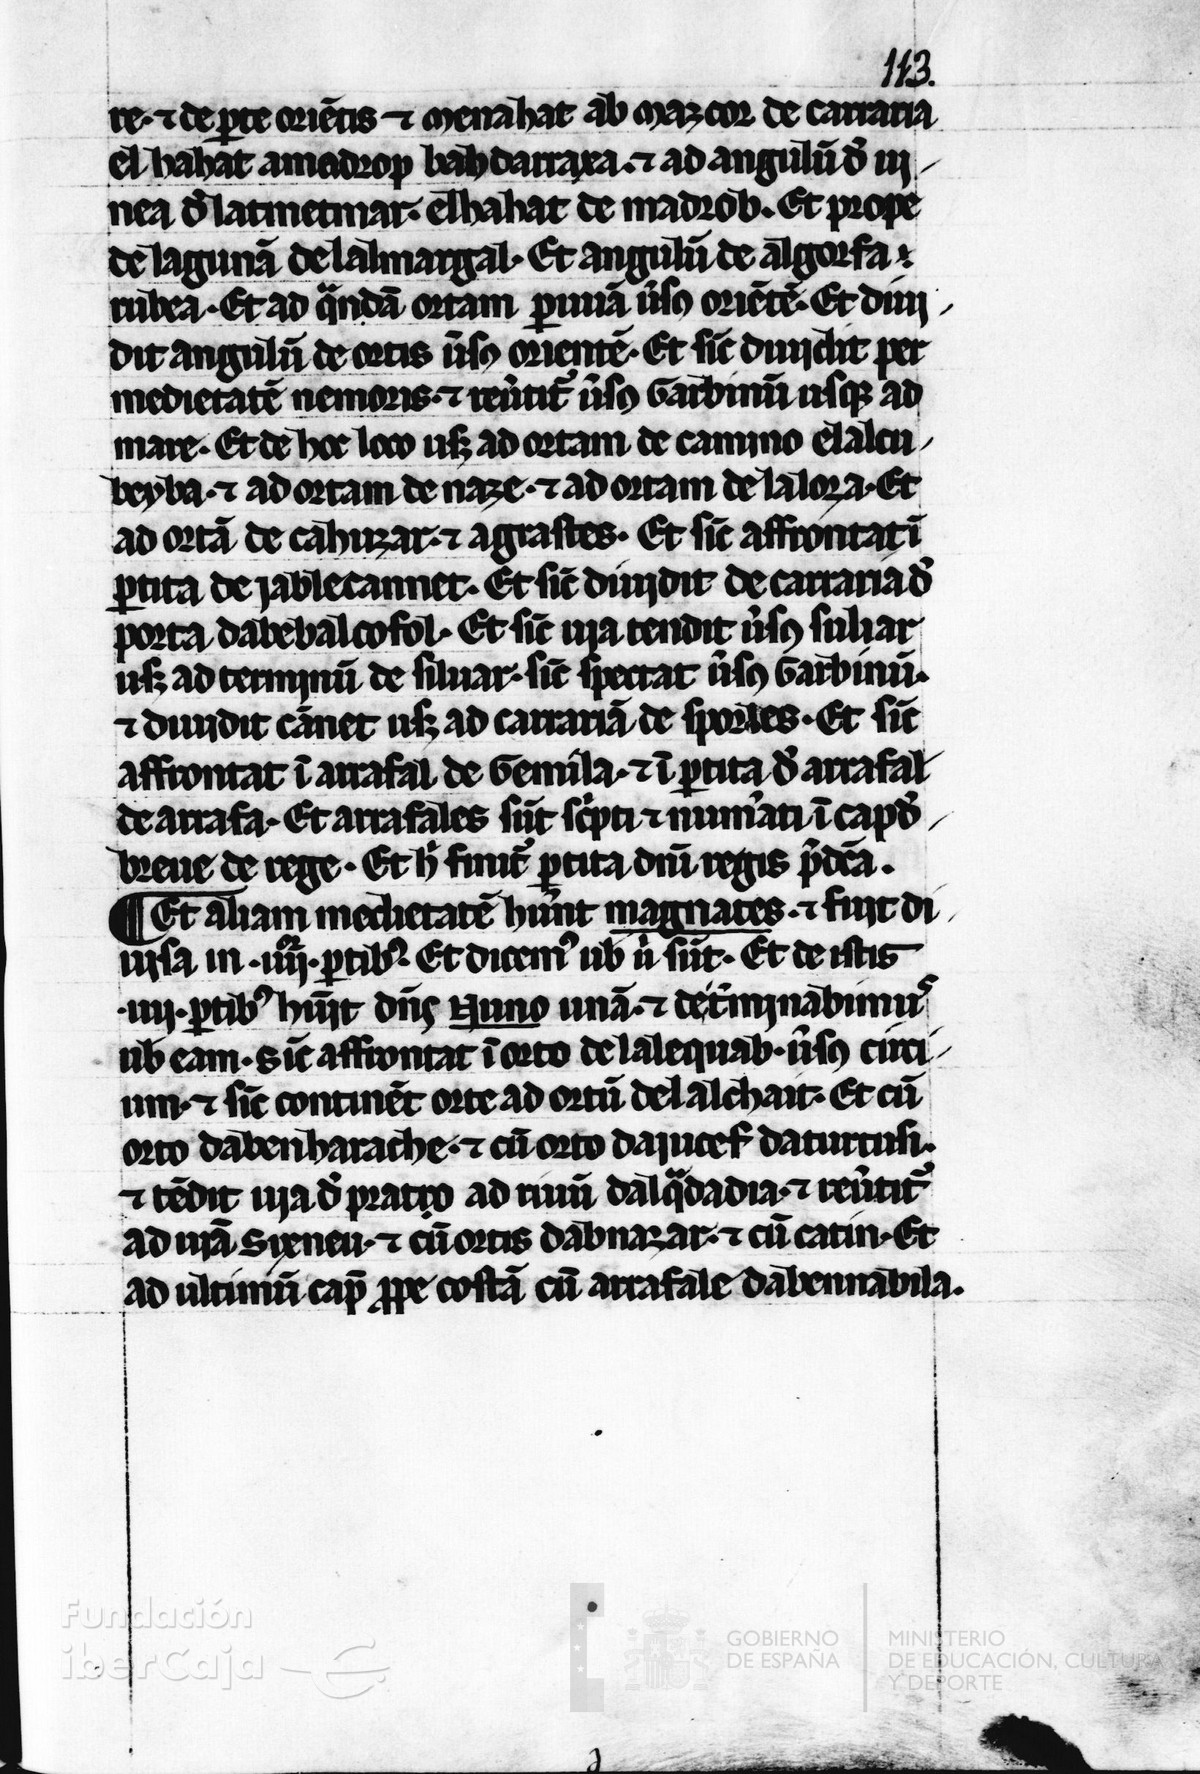 113.
re· ⁊ de ꝑte oriẽtis ⁊ menahat ab mazcor de carraria
el hahat amadrop bahdarraxa· ⁊ ad angulũ đ iii
nea đ latmetmar· elhahat de madrob· Et prope
de lagunã de lalmargal· Et angulũ de algorfa
rubea· Et ad q̃ndã ortam ꝑuuã ũsꝰ oriẽtẽ· Et diui
dit angulũ de ortis ũsꝰ orientẽ· Et sic̃ diuidit per
medietatẽ nemoris· ⁊ reũtit᷑ ũsꝰ Garbinũ usqꝫ ad
mare· Et de hoc loco usqꝫ ad ortam de camino elalcu
beyba· ⁊ ad ortam de naze· ⁊ ad ortam de lalora· Et
ad ortã de cahuzar· ⁊ agrastes· Et sic̃ affrontat ĩ
ꝑtita de jablecannet· Et sic̃ diuidit de carraria đ
porta dabebalcofol· Et sic̃ uia tendit ũsꝰ suliar
usqꝫ ad terminũ de siluar· sic̃ spectat ũsꝰ Garbinũ·
⁊ diuidit cãnet usqꝫ ad carrariã de sportes· Et sic̃
affrontat ĩ arrafal de Gemila· ⁊ ĩ ꝑtita đ arrafal
de arrafa· Et arrafales sũt sc̃pti ⁊ num̃ati ĩ cap đ
breue de rege· Et h̃ finit᷑ ꝑtita dñi regis p̃dc̃a·
¶ Et aliam medietatẽ hũnt magnates· ⁊ fuit di
uisa in ·iiii· ꝑtibꝰ· Et dicemꝰ ubi sũt· Et de istis
·iiii· ꝑtibꝰ hũit dñs Nuno unã· ⁊ det̃minabimus
ub eam· Sic̃ affrontat ĩ orto de lalequab· ũsꝰ circi
um· ⁊ sic̃ continẽt orte ad ortũ del alchait· Et cũ
orto dabenharache· ⁊ cũ orto dajucef daturtusi·
⁊ tẽdit uia đ pratjo ad riuũ dalq̃dadia· ⁊ reũtit᷑
ad uiã Sixneu· ⁊ cũ ortis dabnazar· ⁊ cũ catin· Et
ad ultimũ cap̃ ꝓpe costã cũ arrafale dabennabila·
Fundación
iberCaja
GOBIERNO
DE ESPAÑA
MINISTERIO
DE EDUCACIÓN, CULTURA
Y DEPORTE